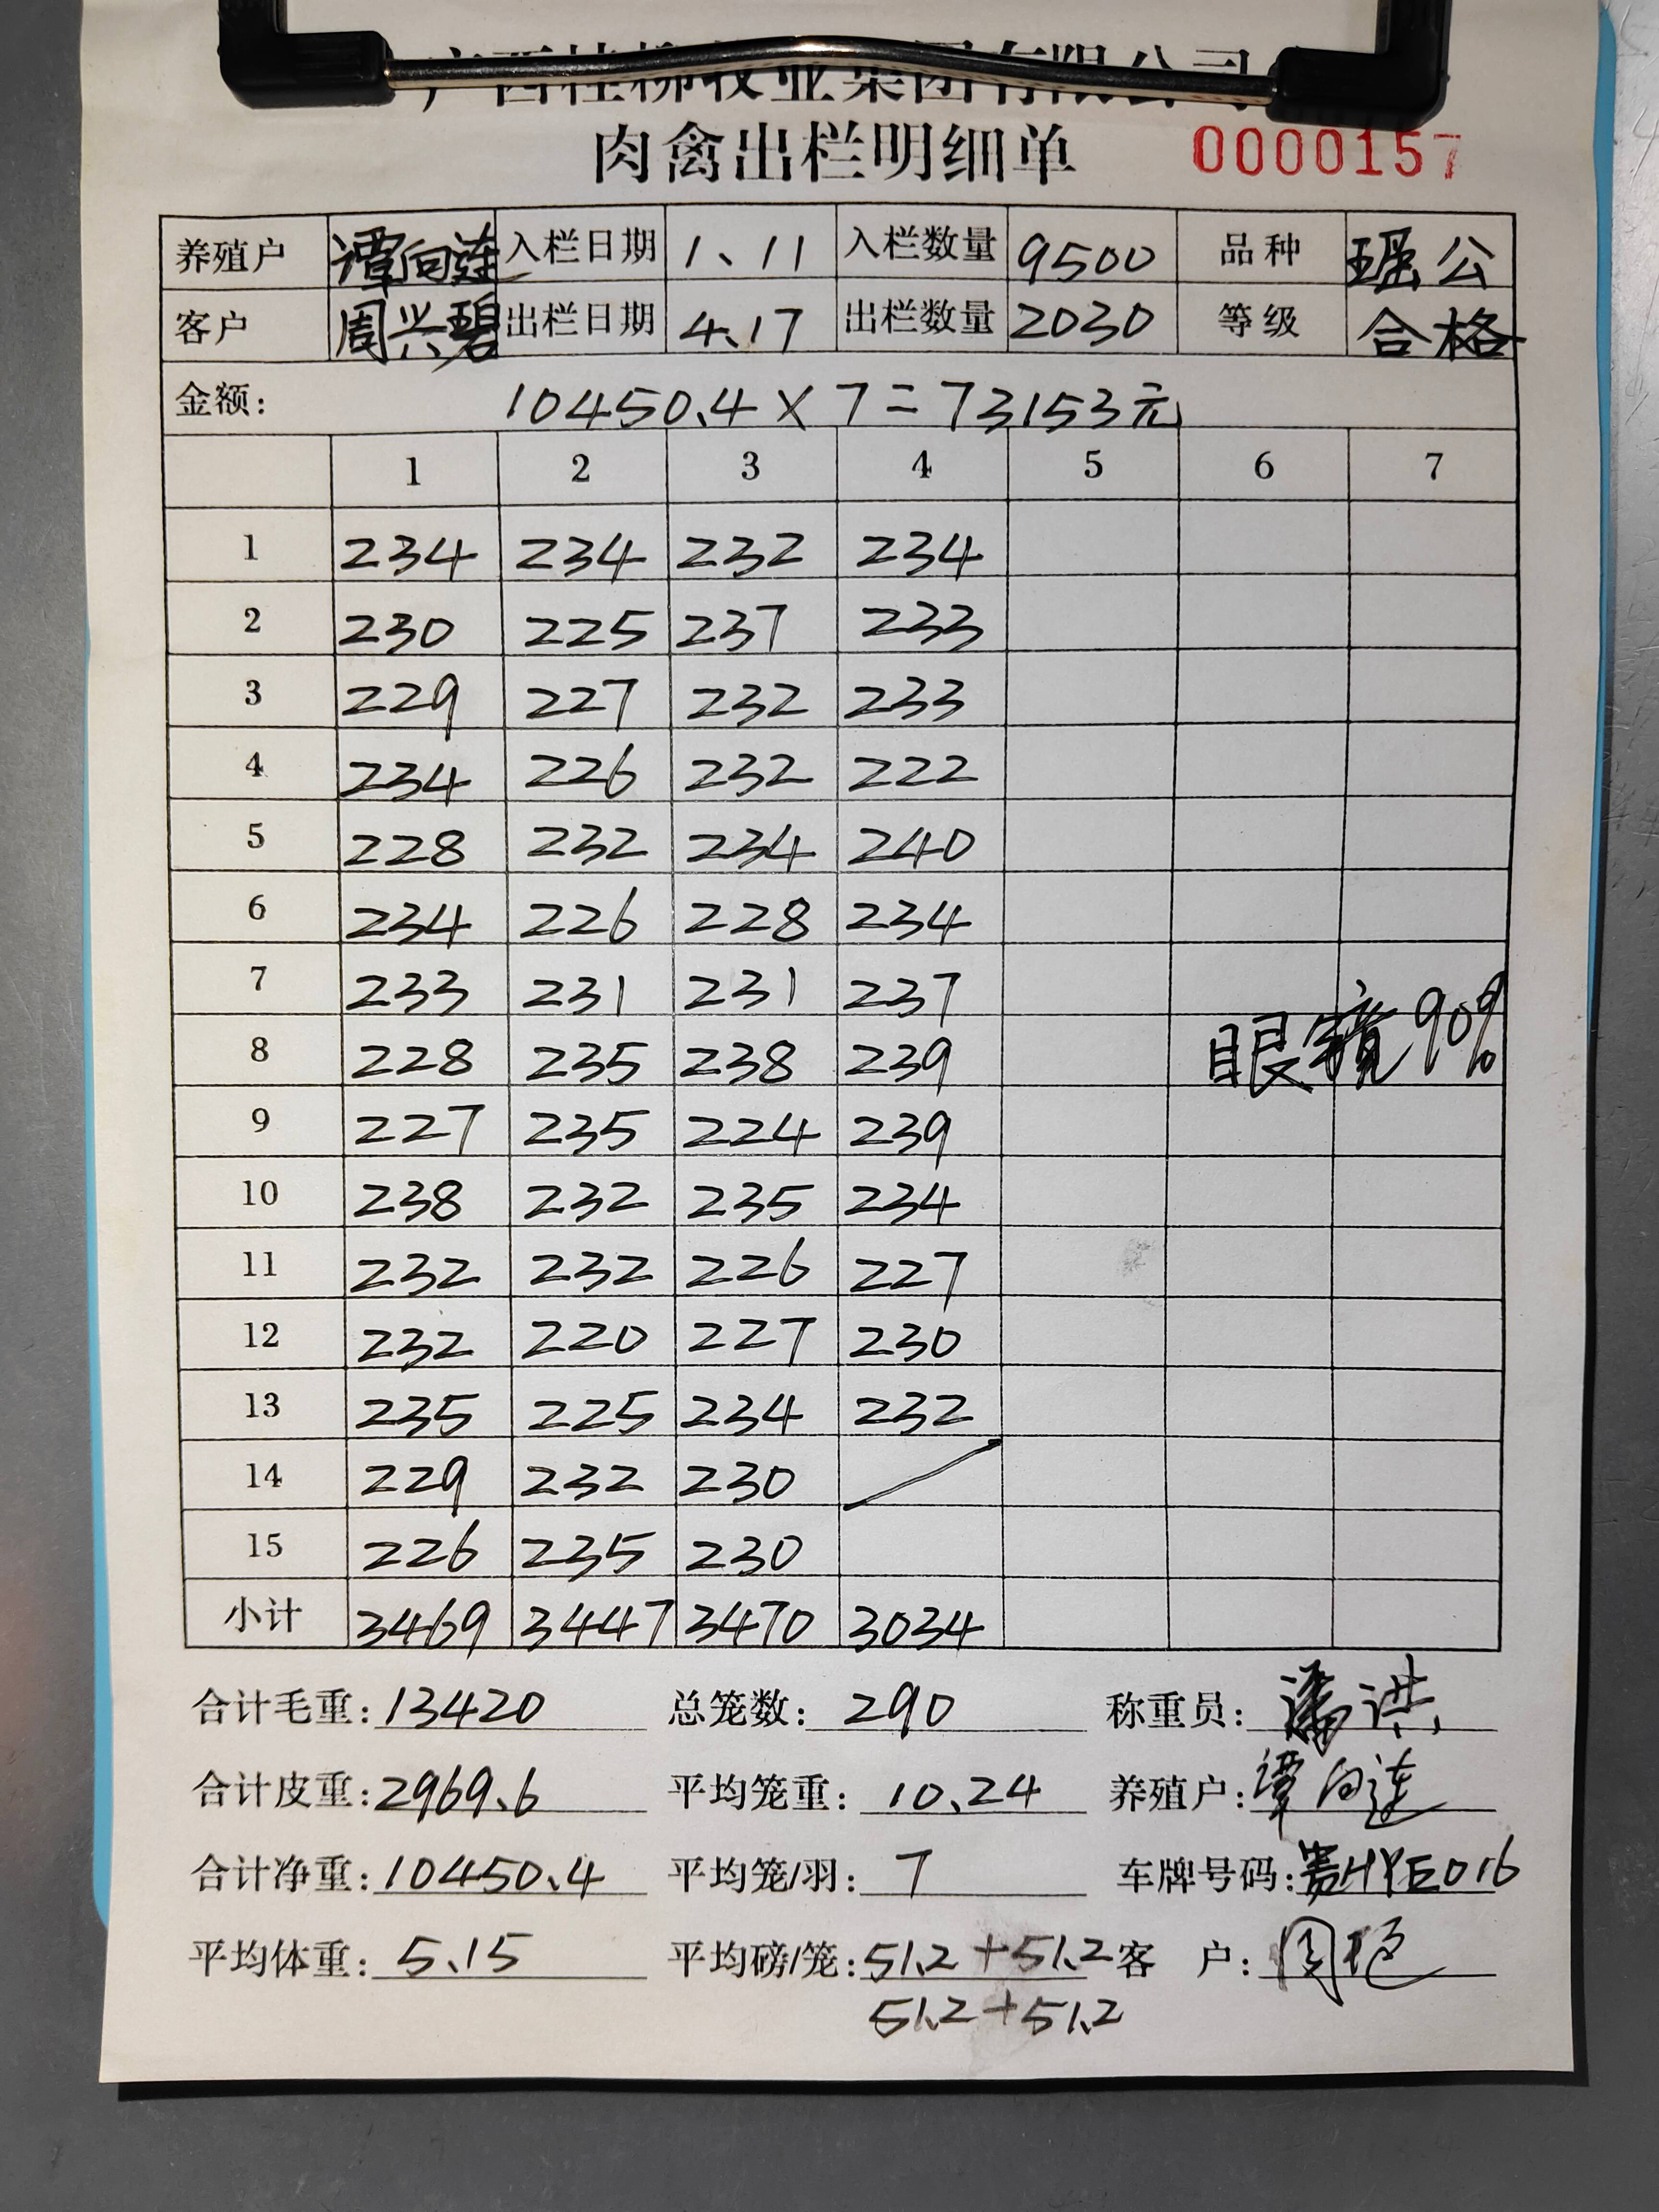 广西桂柳牧业集团有限公司
肉禽出栏明细单 0000157
养殖户 谭向莲 入栏日期 1、11 入栏数量 9500 品种 瑶公
客户 周兴碧 出栏日期 4、17 出栏数量 2030 等级 合格
金额: 10450.4×7=73153元
1 2 3 4 5 6 7
1 234 234 232 234
2 230 225 237 233
3 229 227 232 233
4 234 226 232 222
5 228 232 234 240
6 234 226 228 234
7 233 231 231 237
8 228 235 238 239 眼镜90%
9 227 235 224 239
10 238 232 235 234
11 232 232 226 227
12 232 220 227 230
13 235 225 234 232
14 229 232 230
15 226 235 230
小计 3469 3447 3470 3034
合计毛重: 13420 总笼数: 290 称重员: 潘洪
合计皮重: 2969.6 平均笼重: 10.24 养殖户: 谭向莲
合计净重: 10450.4 平均笼/羽: 7 车牌号码: 贵HYE016
平均体重: 5.15 平均磅/笼: 51.2+51.2 客 户: 周
51.2+51.2